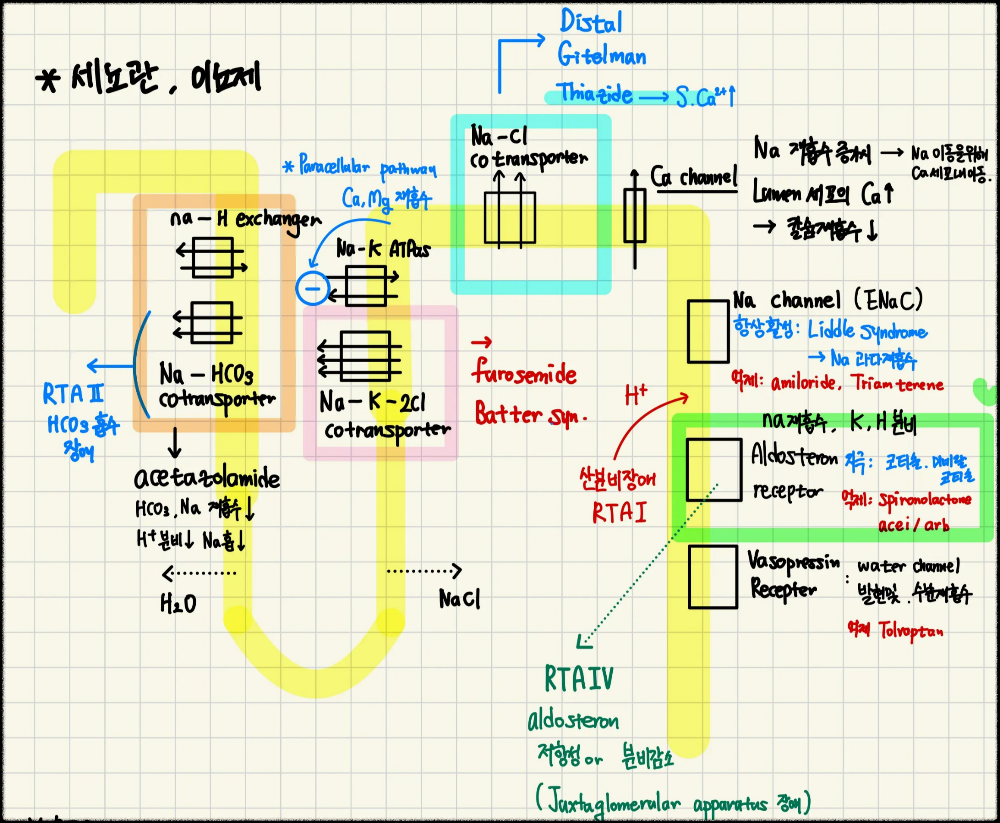 * 세뇨관, 이뇨제
Distal
Gitelman
Thiazide → S.Ca²⁺↑
Na-Cl
cotransporter
Ca channel
Na 재흡수 증가시 → Na 이동을위해
Ca세포내이동.
Lumen 세포의 Ca↑
→ 칼슘재흡수↓
* Paracellular pathway
Ca, Mg 재흡수
na-H exchanger
Na-K ATPas
−
Na-HCO3
cotransporter
RTA II
HCO3 흡수
장애
acetazolamide
HCO3, Na 재흡수↓
H⁺분비↓ Na흡↓
H2O
Na-K-2cl
cotransporter
→
furosemide
Batter syn.
NaCl
Na channel (ENaC)
항상활성: Liddle Syndrome
→ Na 과다재흡수
억제: amiloride, Triamterene
H⁺
산분비장애
RTA I
na재흡수, K, H분비
Aldosteron
receptor
자극: 코티솔.
코티솔
억제: Spironolactone
acei/arb
Vasopressin
Recepter
: water channel
발현및 수분재흡수
억제 Tolvaptan
RTA IV
aldosteron
저항성 or 분비감소
(Juxtaglomerular apparatus 장애)